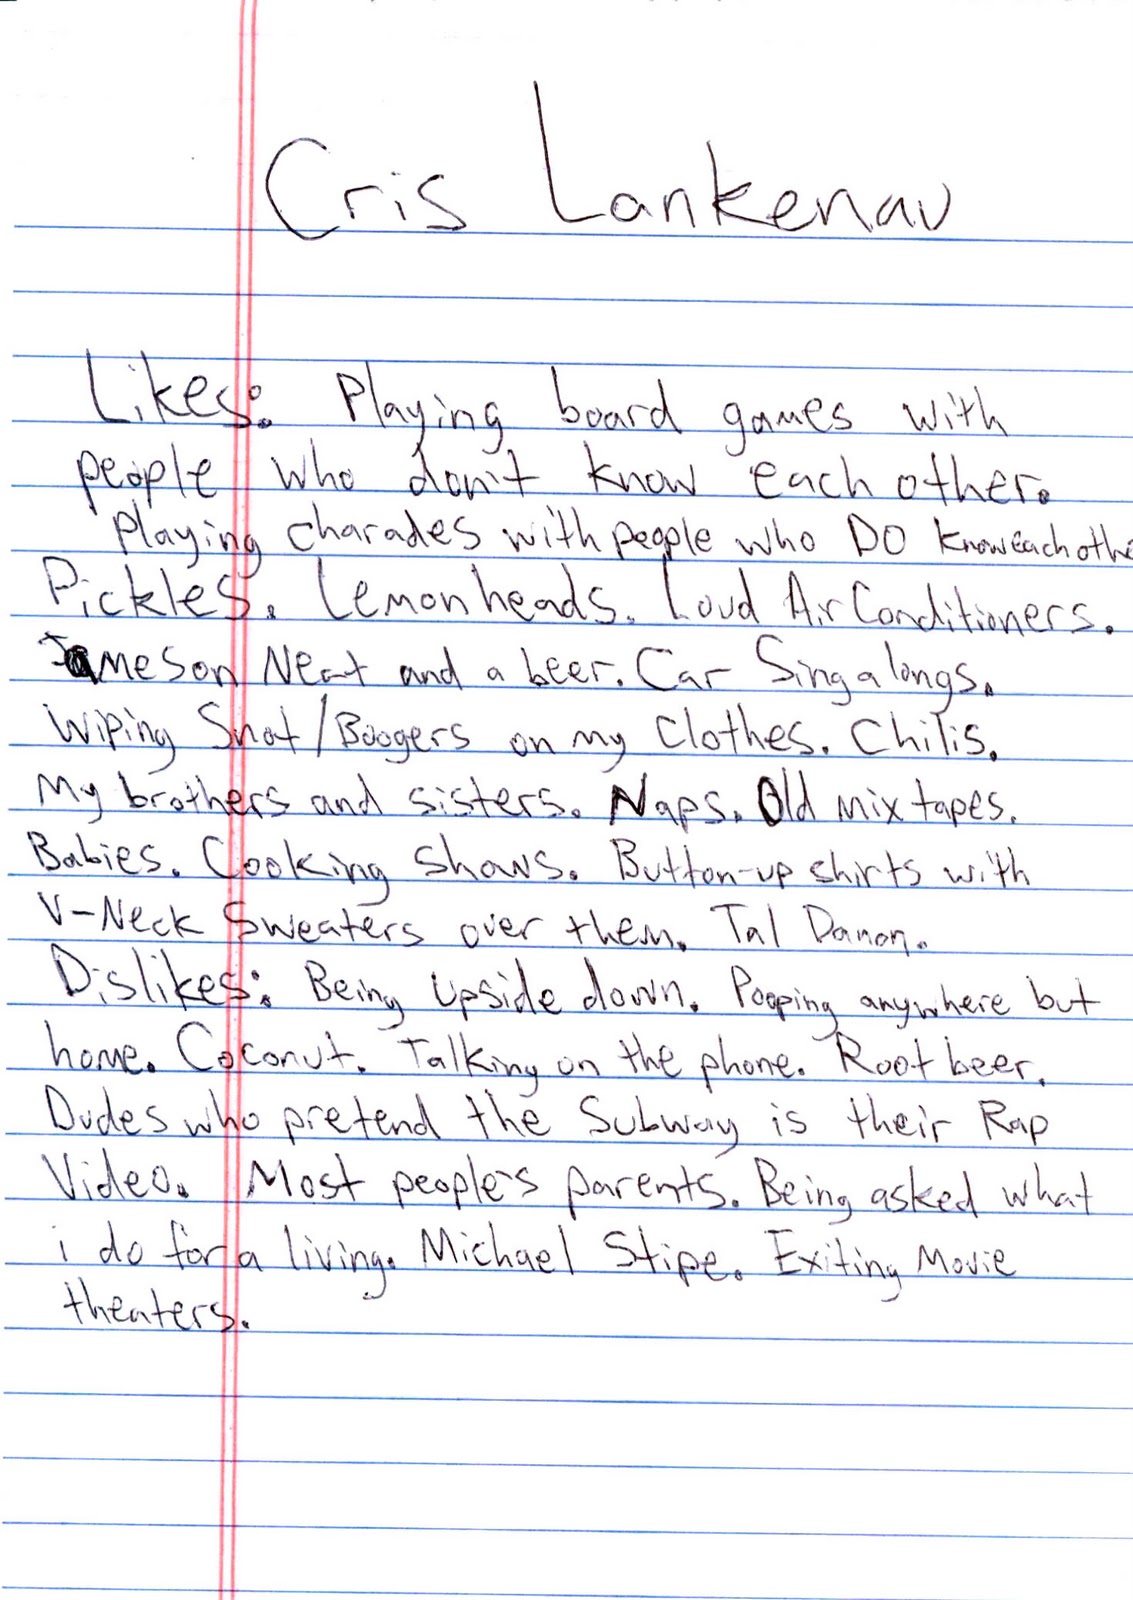 Cris Lankenau
Likes: Playing board games with
people who don't know each other.
Playing charades with people who DO know each othe
Pickles. Lemonheads. Loud Air Conditioners.
Jameson Neat and a beer. Car Singalongs.
Wiping Snot/Boogers on my Clothes. Chilis.
My brothers and sisters. Naps. Old mix tapes.
Babies. Cooking shows. Button-up shirts with
V-Neck Sweaters over them. Tal Danon.
Dislikes: Being Upside down. Pooping anywhere but
home. Coconut. Talking on the phone. Root beer.
Dudes who pretend the Subway is their Rap
Video. Most people's parents. Being asked what
i do for a living. Michael Stipe. Exiting Movie
theaters.